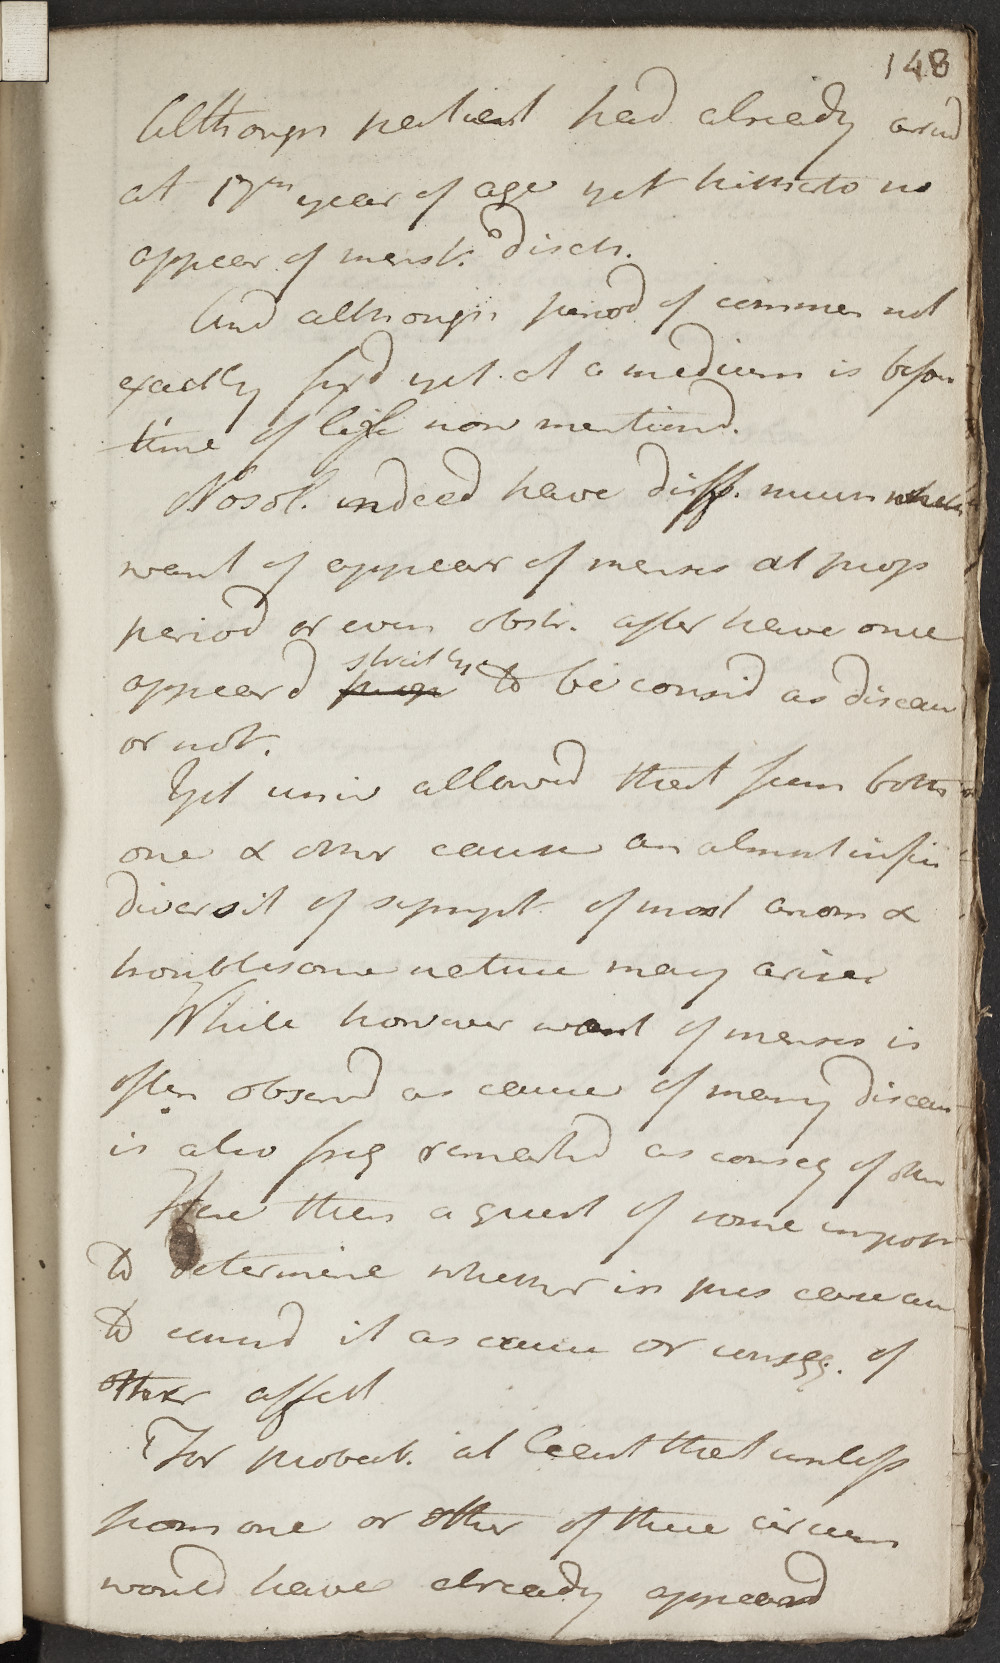 148
Although patient had already arivd
at 17th year of age yet hitherto no
appear. of menst. disch.
And although period of commen not
exactly fixd yet at a medium is befor
time of life now mentiond.
Nosol. indeed have diff. much whether
want of appear of menses at prop
period or even obstr. after have once
appeard strictly to be consid as diseas
or not.
Yet univ allowed that from both
one & other cause an almost infin
diversit of sympt. of most anom &
troublesome nature may arise
While however want of menses is
often observd as cause of many diseas
is also freq remarkd as conseq of other
Here then a quest of some import
to determine whether in pres case am
to consid it as cause or conseq. of
other affect
For probab. at least that unless
from one or other of these circum
would have already appeard